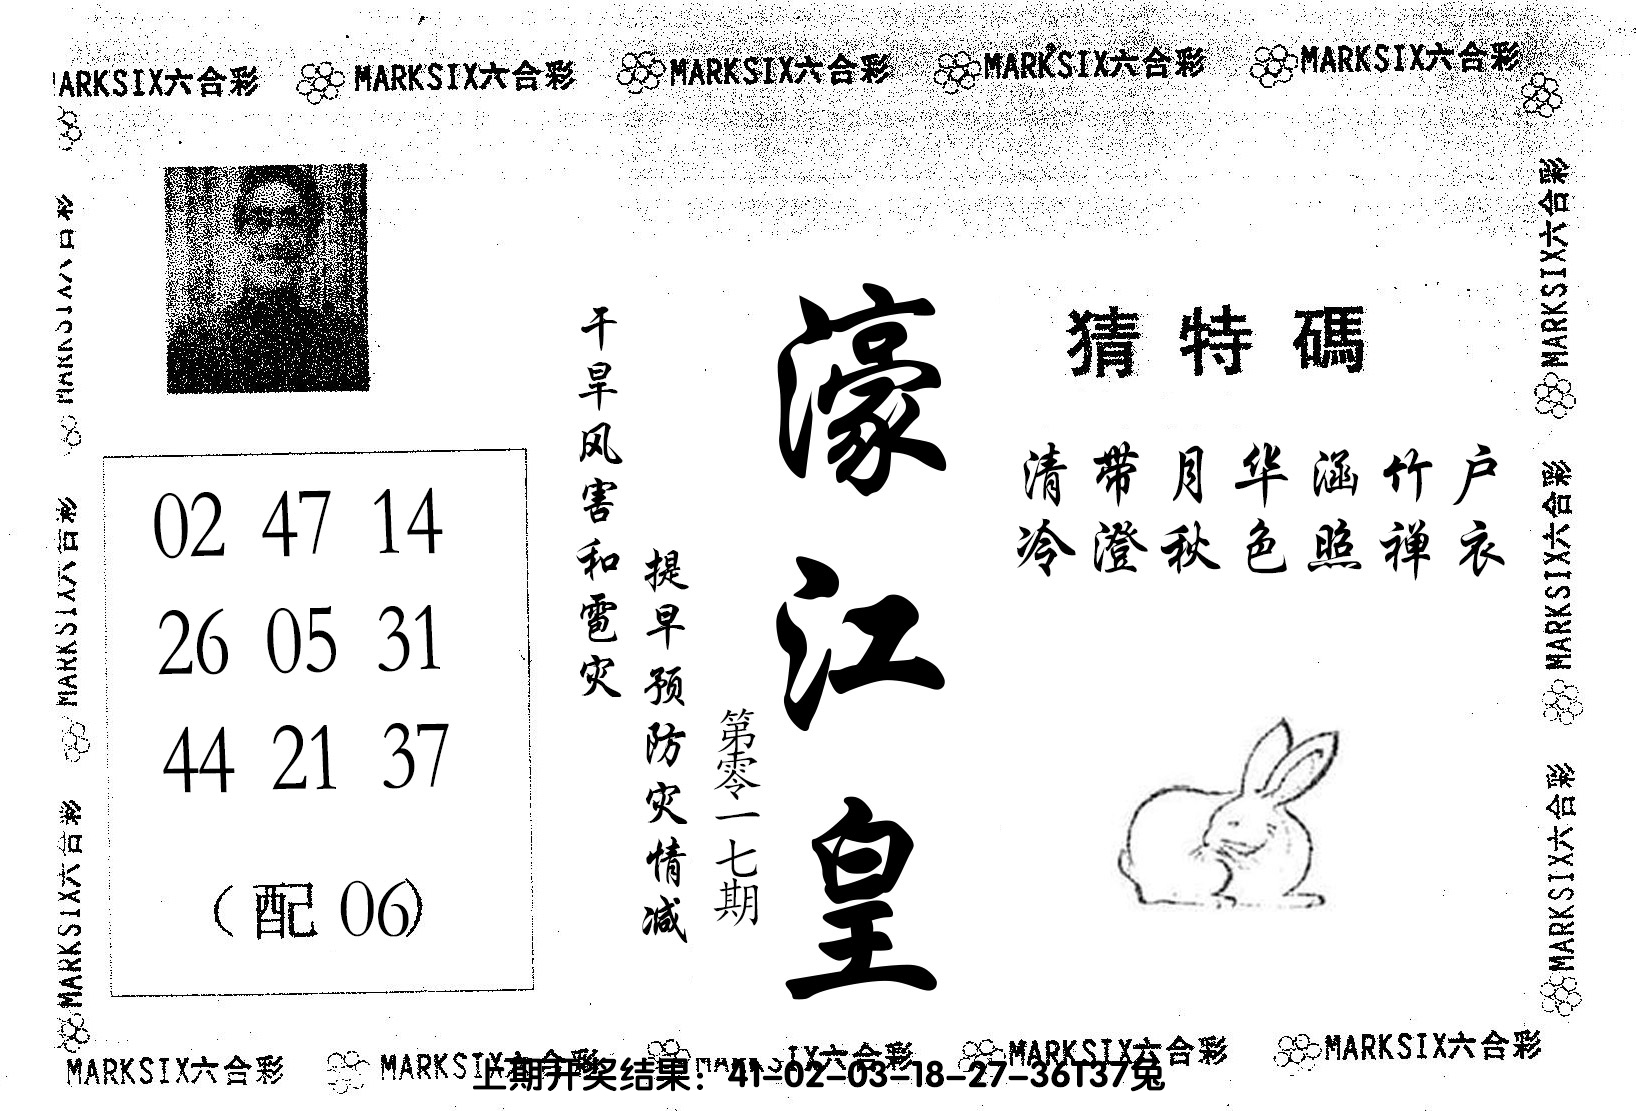 MARKSIX六合彩 MARKSIX六合彩 MARKSIX六合彩 MARKSIX六合彩
猜特碼
清带月华涵竹户
冷澄秋色照禅衣
濠江皇
第零一七期
干旱风害和雹灾
提早预防灾情减
02 47 14
26 05 31
44 21 37
（配 06）
MARKSIX六合彩
MARKSIX六合彩
MARKSIX六合彩
MARKSIX六合彩
MARKSIX六合彩
MARKSIX六合彩
MARKSIX六合彩 MARKSIX六合彩 MARKSIX六合彩 MARKSIX六合彩
上期开奖结果：41-02-03-18-27-36T37兔